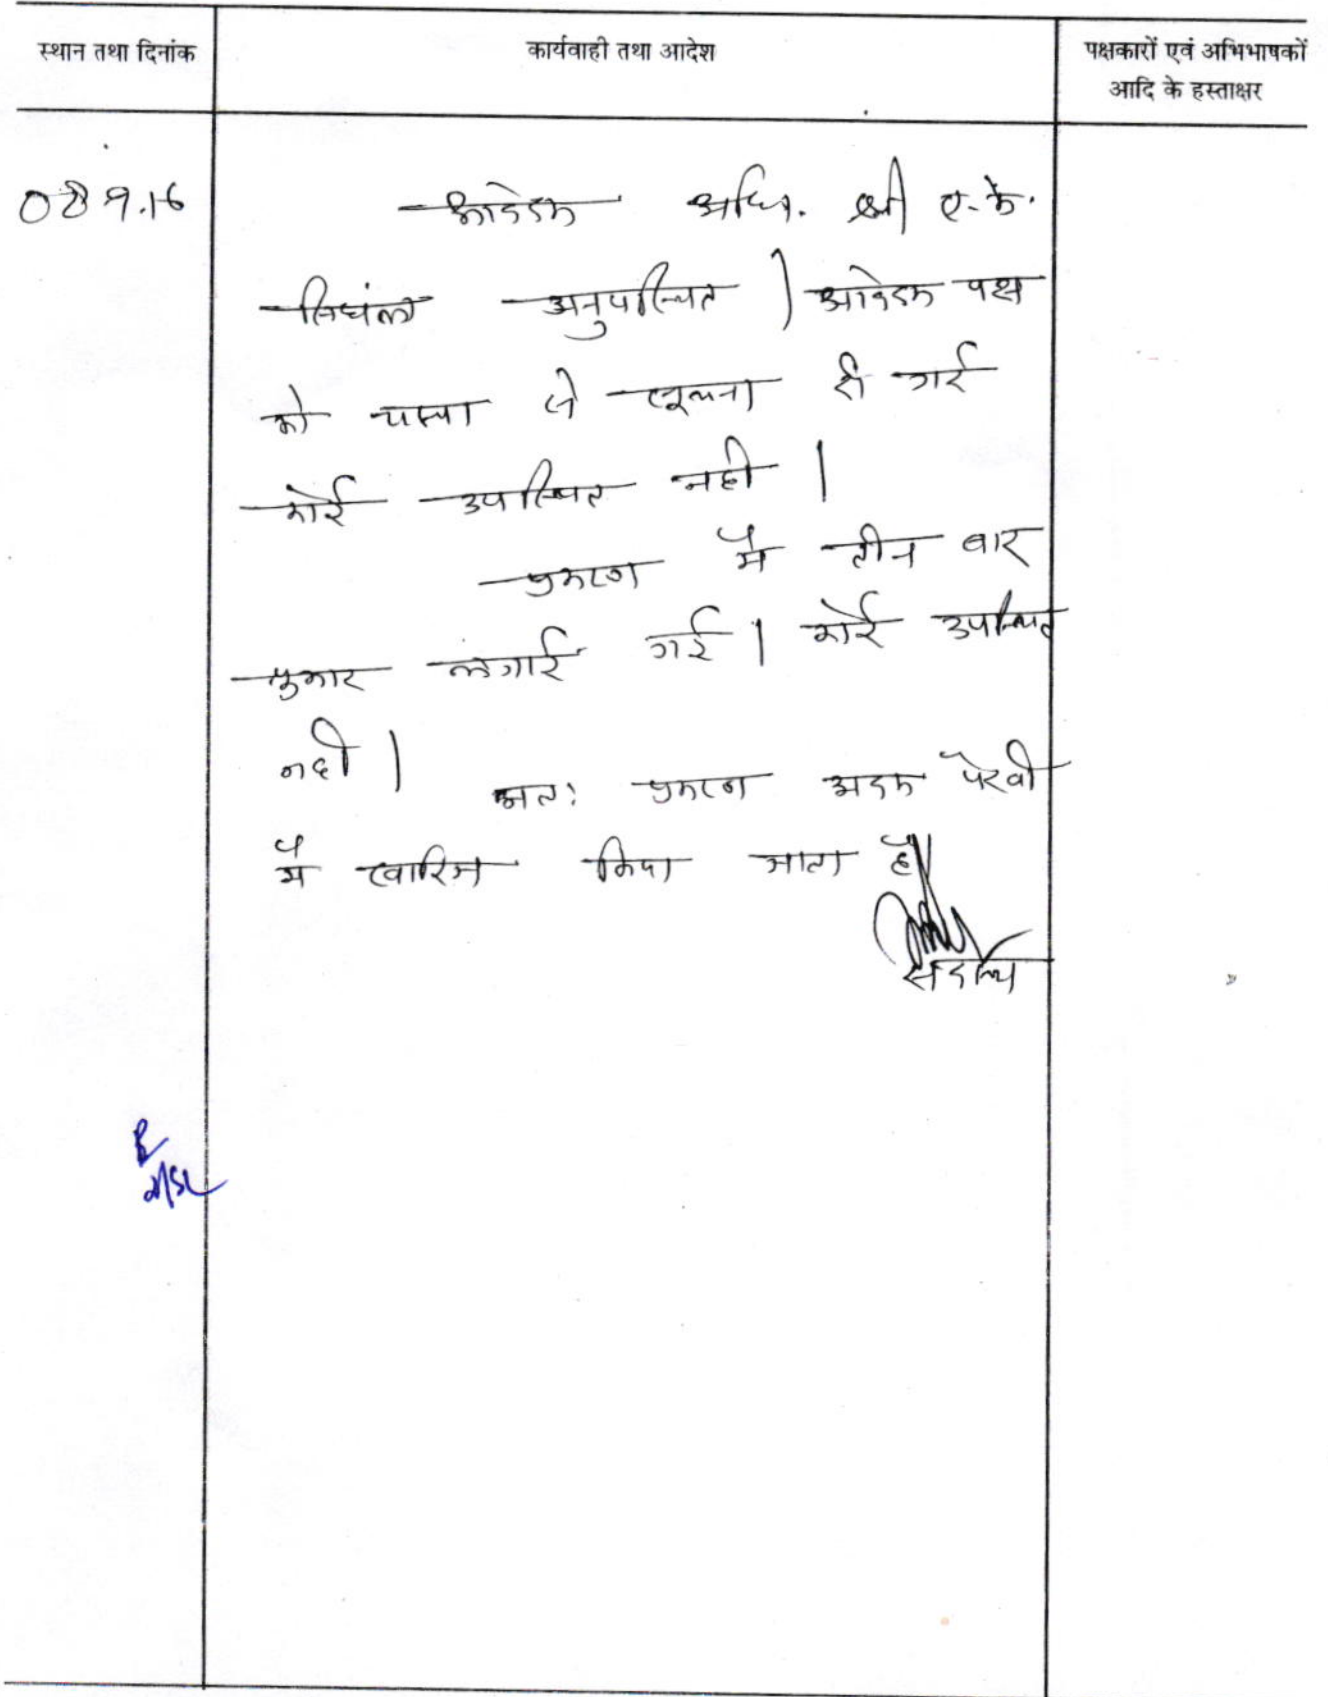 स्थान तथा दिनांक
कार्यवाही तथा आदेश
पक्षकारों एवं अभिभाषकों
आदि के हस्ताक्षर
08 9.16
आवेदक अधि. श्री ए.के.
सिघंल अनुपस्थित । आवेदक पक्ष
को चस्पा से सूचना दी गई
कोई उपस्थित नही ।
प्रकरण में तीन बार
पुकार लगाई गई । कोई उपस्थित
नही ।
अतः प्रकरण अदम पैरवी
में खारिज किया जाता है
सदस्य